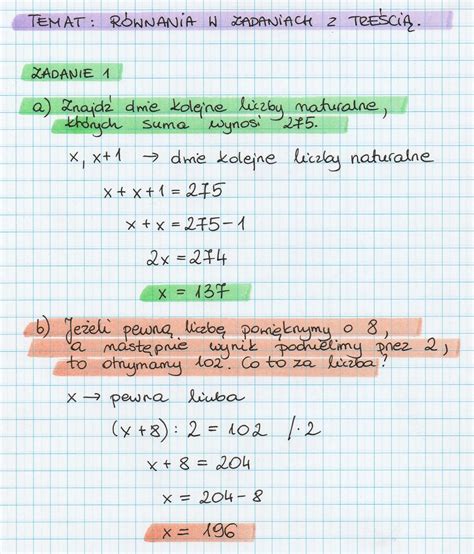 TEMAT: RÓWNANIA W ZADANIACH Z TREŚCIĄ.
ZADANIE 1
a) Znajdź dwie kolejne liczby naturalne,
których suma wynosi 275.
x, x+1 → dwie kolejne liczby naturalne
x + x + 1 = 275
x + x = 275 - 1
2x = 274
x = 137
b) Jeżeli pewną liczbę powiększymy o 8,
a następnie wynik podzielimy przez 2,
to otrzymamy 102. Co to za liczba?
x → pewna liczba
(x + 8) : 2 = 102 / · 2
x + 8 = 204
x = 204 - 8
x = 196